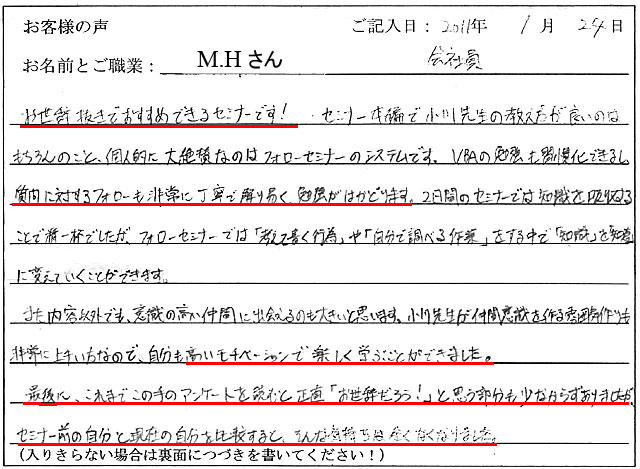 お客様の声　ご記入日：2011年 1月 24日
お名前とご職業：M.Hさん　会社員
お世辞抜きでおすすめできるセミナーです！ セミナー本編で小川先生の教え方が良いのは
もちろんのこと、個人的に大絶賛なのはフォローセミナーのシステムです。VBAの勉強も習慣化できるし
質問に対するフォローも非常に丁寧で解り易く勉強がはかどります。2日間のセミナーでは知識を吸収する
ことで精一杯でしたが、フォローセミナーでは「考えて書く行為」や「自分で調べる作業」をする中で「知識」を知恵
に変えていくことができます。
また内容以外でも、意識の高い仲間に出会えるのも大きいと思います。小川先生が仲間意識を作る雰囲気作りも
非常に上手い方なので、自分も高いモチベーションで楽しく学ぶことができました。
最後に、これまでこの手のアンケートを読むと正直「お世辞だろう！」と思う部分も少なからずありましたが、
セミナー前の自分と現在の自分を比較すると、そんな気持ちは全くなくなりました。
（入りきらない場合は裏面につづきを書いてください！）